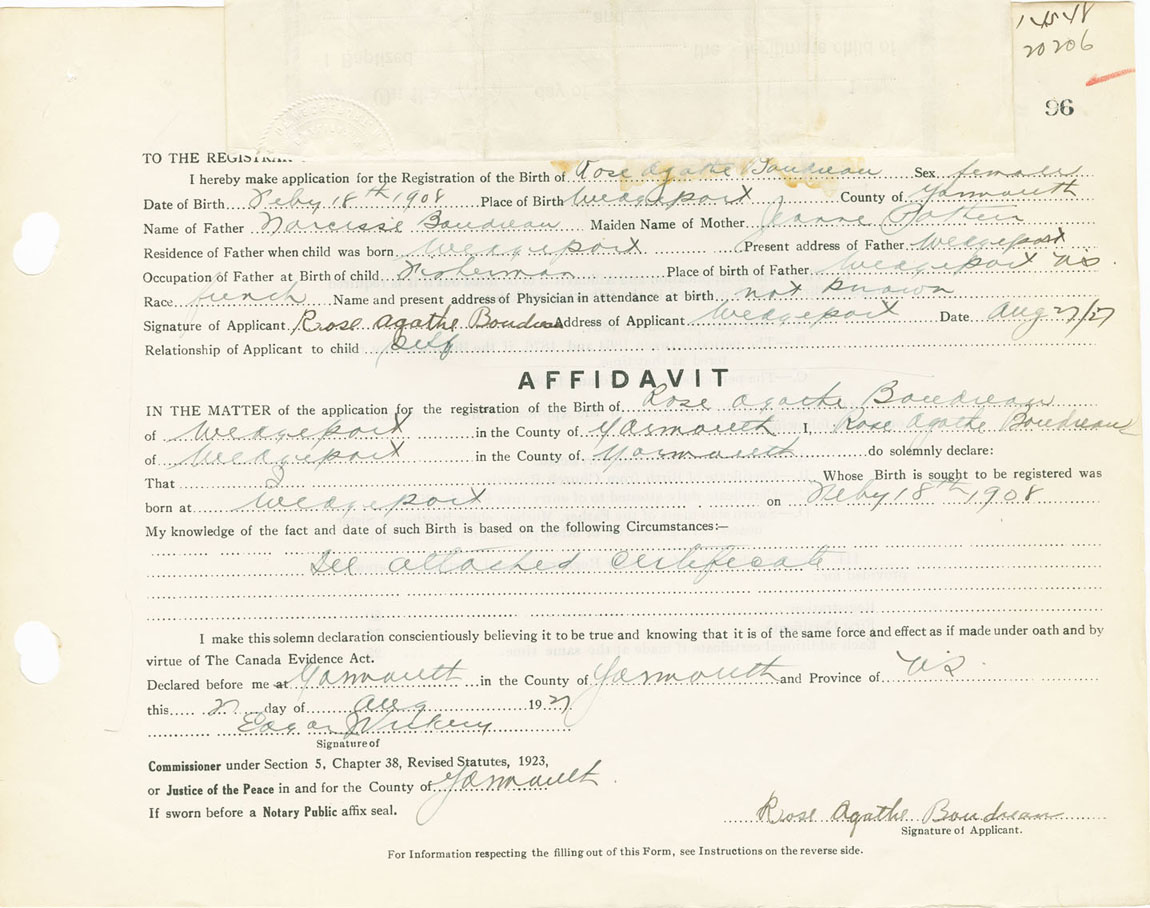 20206
96
TO THE REGISTRAR
I hereby make application for the Registration of the Birth of Rose Agathe Boudreau Sex female
Date of Birth Feby 18th 1908 Place of Birth Wedgeport County of Yarmouth
Name of Father Narcisse Boudreau Maiden Name of Mother Jeanne Pothier
Residence of Father when child was born Wedgeport Present address of Father Wedgeport
Occupation of Father at Birth of child Fisherman Place of birth of Father Wedgeport NS.
Race french Name and present address of Physician in attendance at birth not known
Signature of Applicant Rose Agathe Boudreau Address of Applicant Wedgeport Date Aug 27/27
Relationship of Applicant to child self
AFFIDAVIT
IN THE MATTER of the application for the registration of the Birth of Rose Agathe Boudreau
of Wedgeport in the County of Yarmouth I, Rose Agathe Boudreau
of Wedgeport in the County of Yarmouth do solemnly declare:
That I Whose Birth is sought to be registered was
born at Wedgeport on Feby 18th 1908
My knowledge of the fact and date of such Birth is based on the following Circumstances:—
See attached certificate
I make this solemn declaration conscientiously believing it to be true and knowing that it is of the same force and effect as if made under oath and by
virtue of The Canada Evidence Act.
Declared before me at Yarmouth in the County of Yarmouth and Province of NS.
this 27 day of Aug 1927
Edgar
Signature of
Commissioner under Section 5, Chapter 38, Revised Statutes, 1923,
or Justice of the Peace in and for the County of Yarmouth.
If sworn before a Notary Public affix seal.
Rose Agathe Boudreau
Signature of Applicant.
For Information respecting the filling out of this Form, see Instructions on the reverse side.